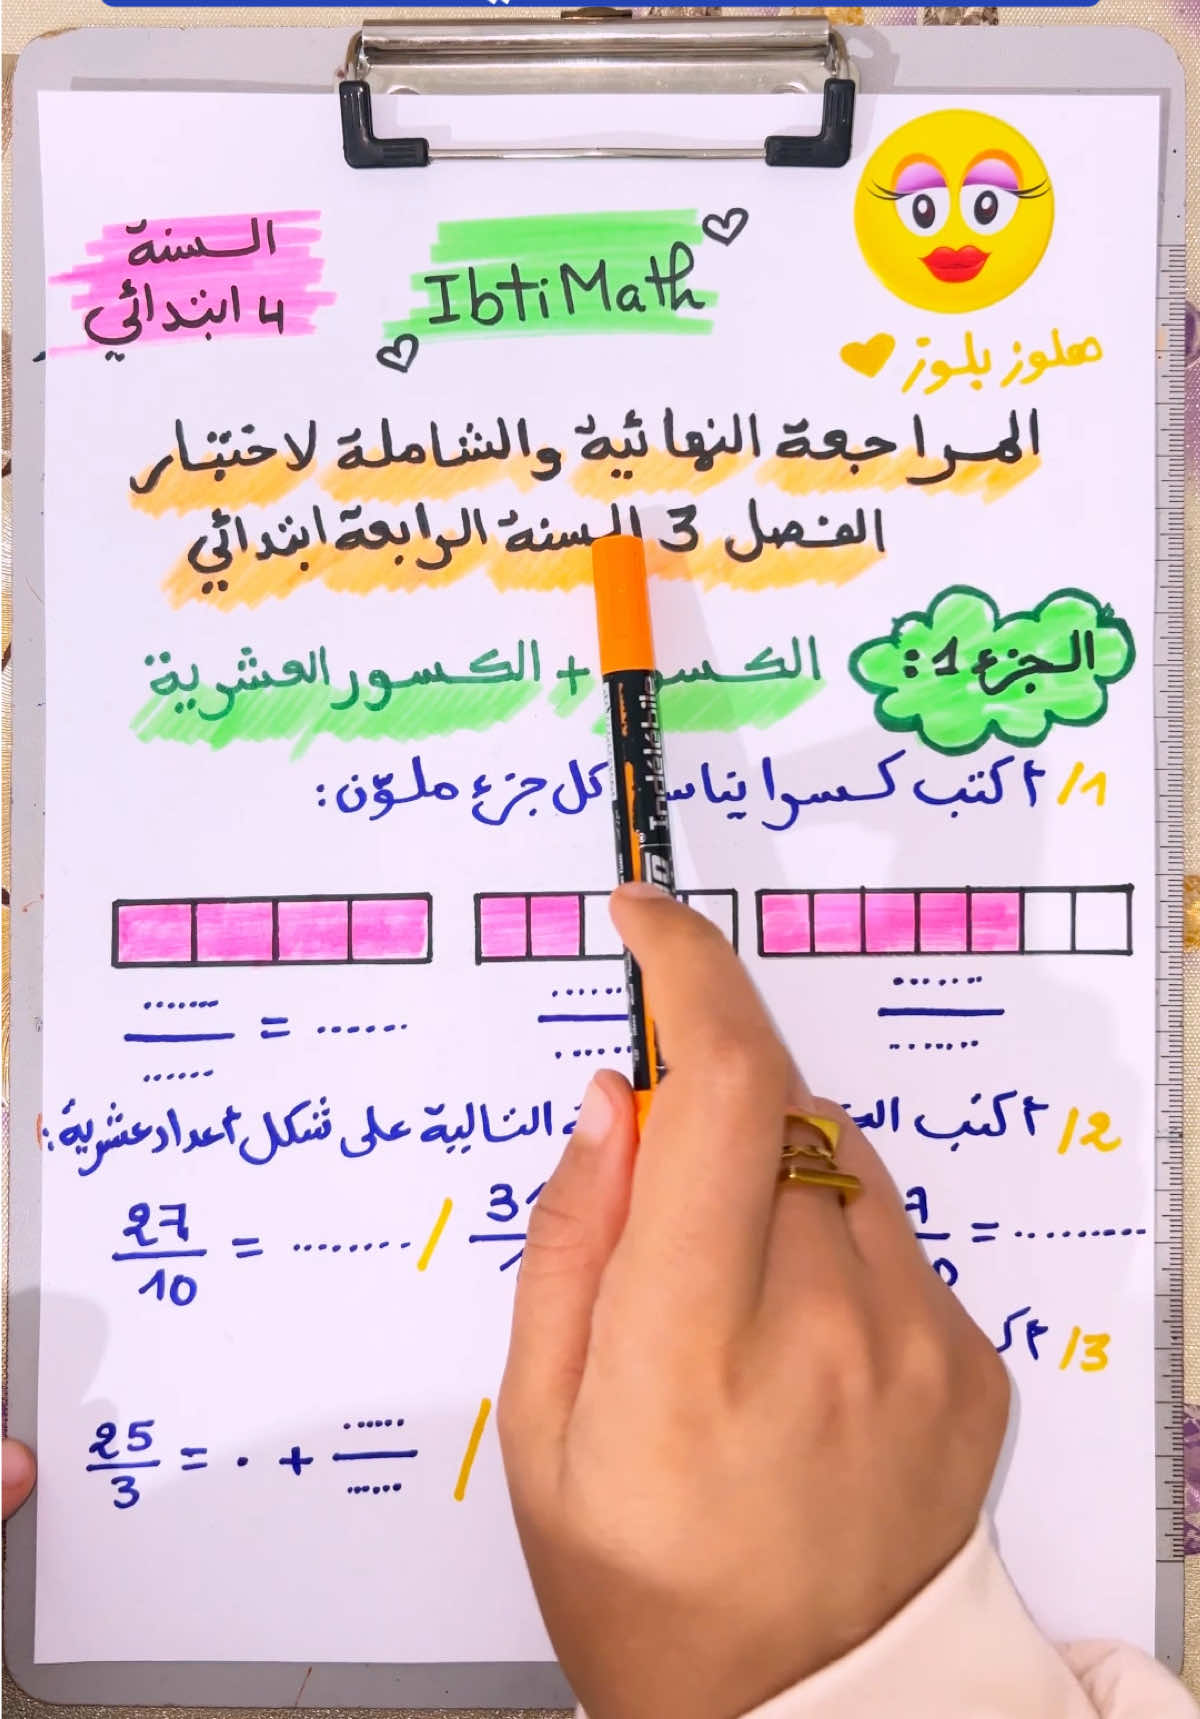 السنة
4 ابتدائي
IbtiMath
هلوز بلوز
المراجعة النهائية والشاملة لاختبار
الفصل 3 السنة الرابعة ابتدائي
الجزء 1:
الكسور + الكسور العشرية
1/ أكتب كسرا يناسب كل جزء ملوّن:
....... / ....... = .......
....... / .......
....... / .......
2/ أكتب التالية على شكل أعداد عشرية:
27/10 = ........ /
= .........
3/
25/3 = . + ...... / ...... /
Indélébile